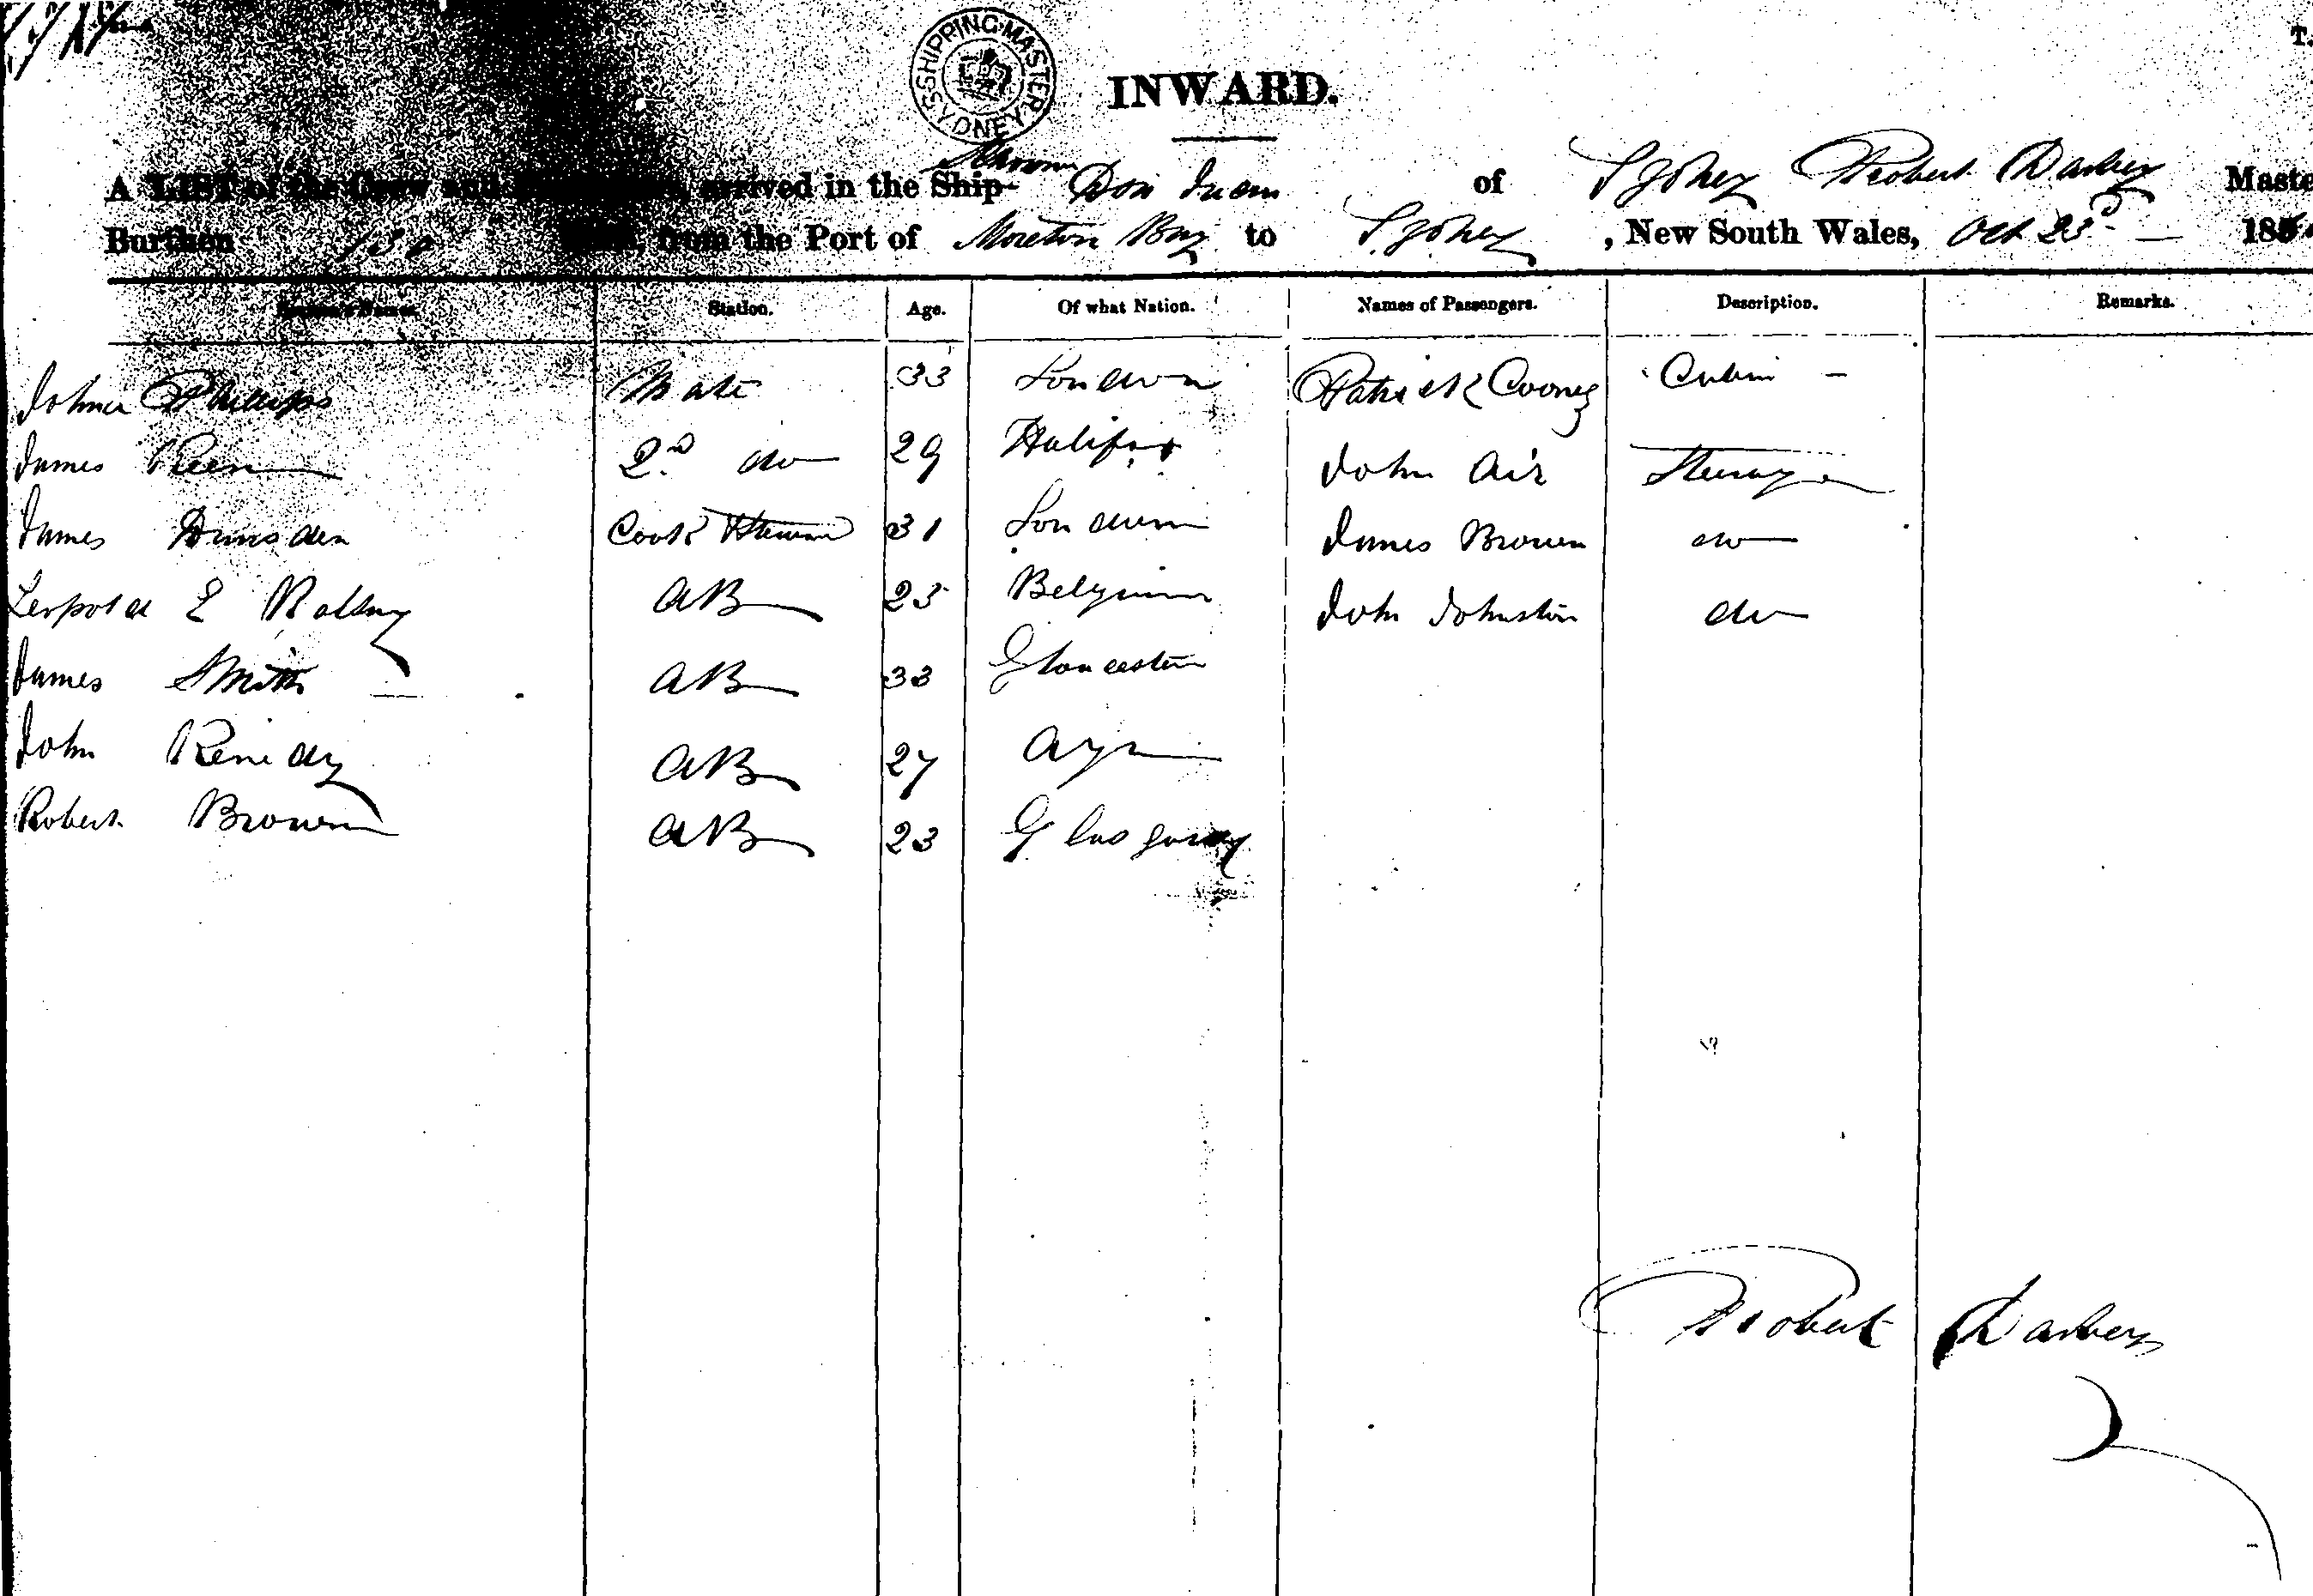 SHIPPING MASTER SYDNEY
INWARD.
Schooner
A LIST of the Crew and arrived in the Ship Don Juan of Sydney Robert Darbey Maste
Burthen 130 from the Port of Moreton Bay to Sydney, New South Wales, Oct 23d 18
Station. Age. Of what Nation. Names of Passengers. Description. Remarks.
Phillips Mate 33 London Patrick Cooney Cabin
James 2nd do 29 Halifax John Air Steerage
James Cook & Steward 31 London James Brown do
Leopold E 23 Belgium John Johnston do
James Smith AB 33 Gloucester
John Kenedy AB 27 Ayr
Robert Brown AB 23 Glasgow
Robert Darbey